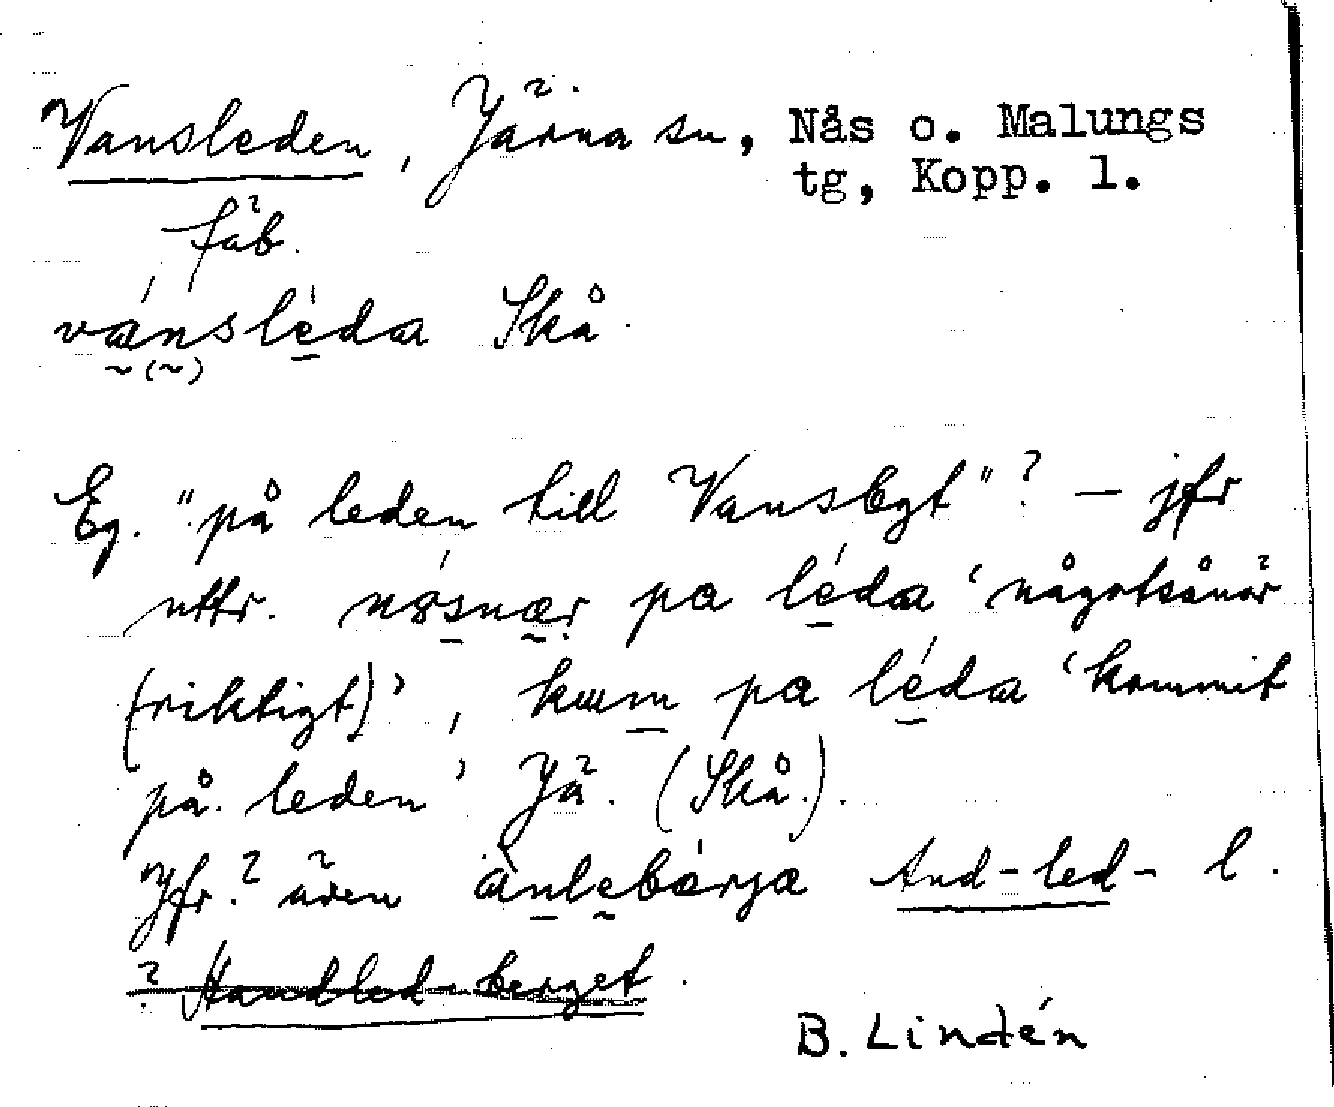 Vansleden, Järna sn, Nås o. Malungs
tg, Kopp. l.
fäb.
vánsléda Skå.
Eg. "på leden till Vansbyt"? — jfr
uttr. nósnær pa léda 'någotsånär
(riktigt)', kum pa léda 'kommit
på leden' Jä. (Skå.).
Jfr.? även ànlebárja And-led- l.
? Handled-berget.
B. Lindén